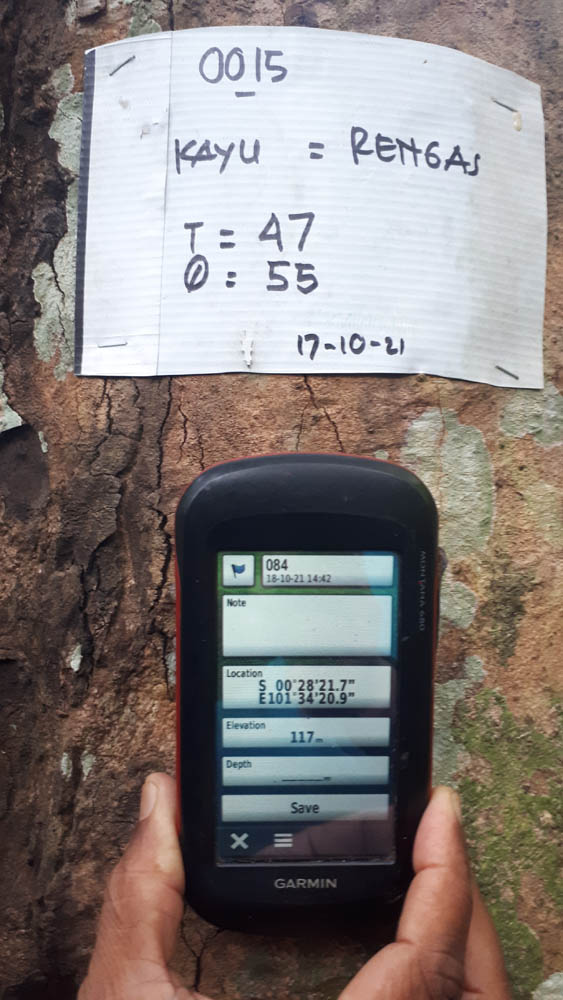 0015
KAYU = RENGAS
T = 47
Ø = 55
17-10-21
084
18-10-21 14:42
Note
Location
S 00°28'21.7"
E101°34'20.9"
Elevation
117 m
Depth
Save
GARMIN
MONTANA 680